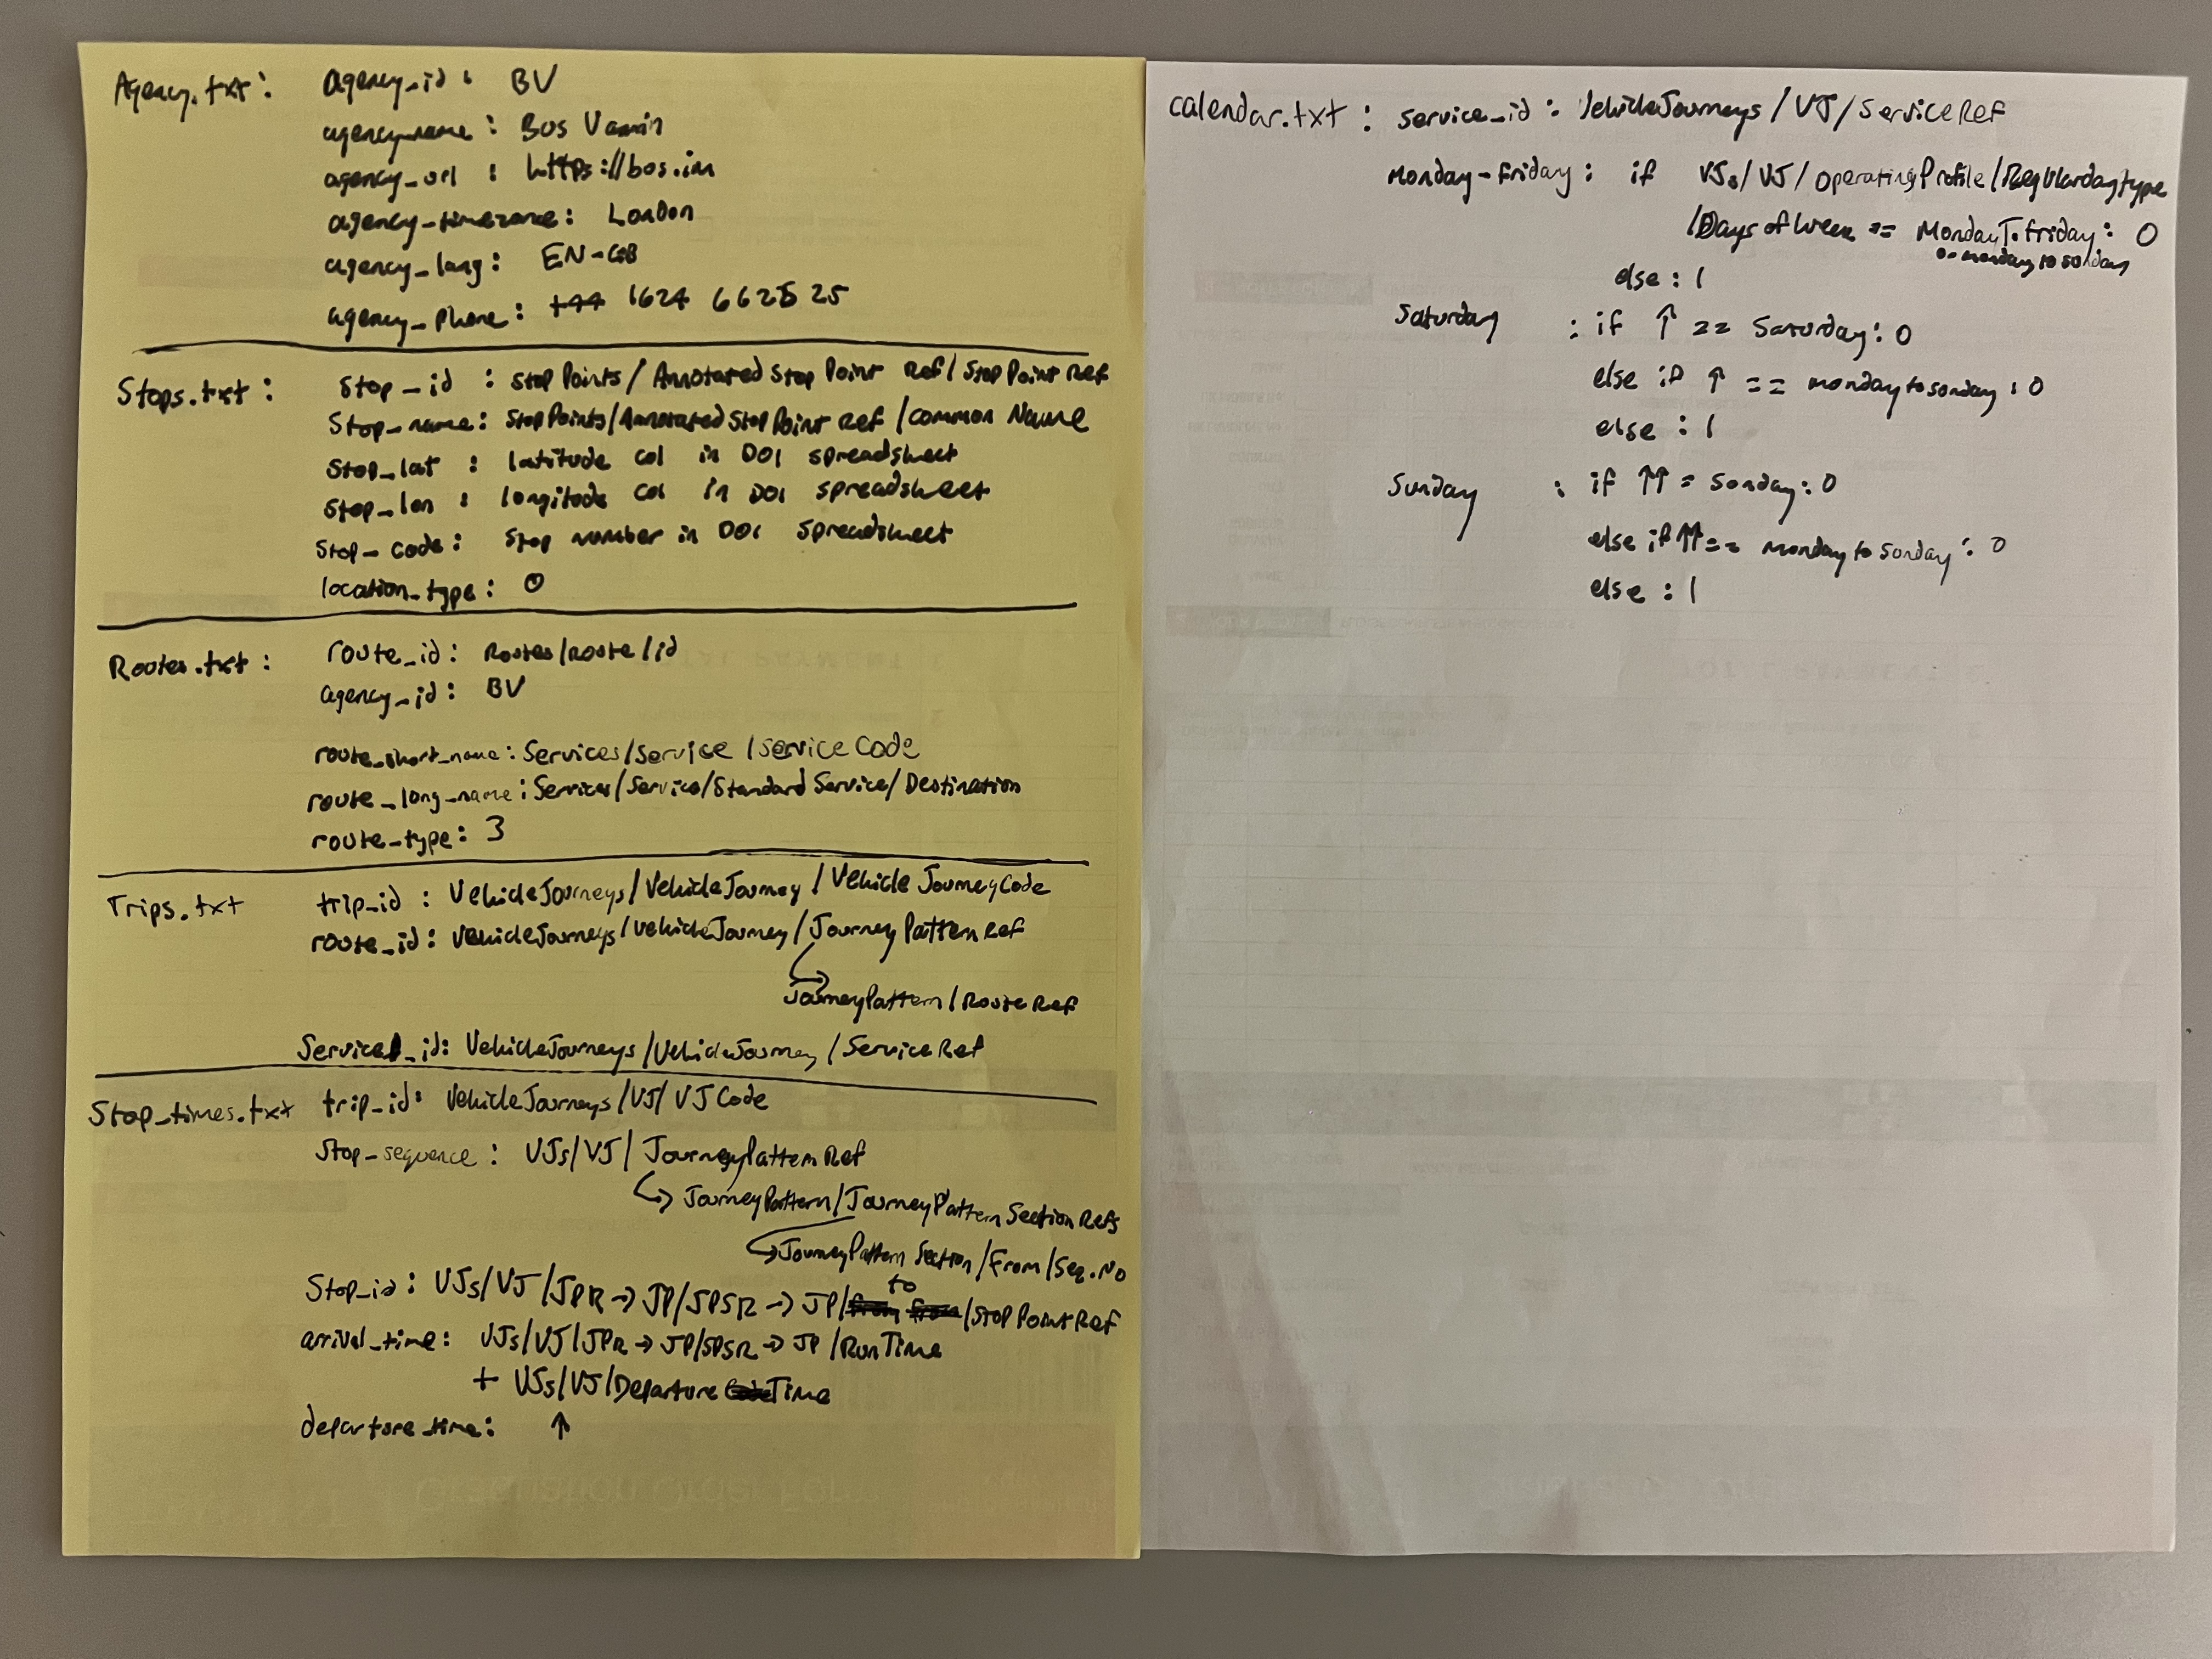 Agency.txt: agency_id: BV
agency_name: Bus Vannin
agency_url: https://bus.im
agency_timezone: London
agency_lang: EN-GB
agency_phone: +44 1624 662525
Stops.txt: Stop_id: StopPoints/AnnotatedStopPointRef/StopPointRef
Stop_name: StopPoints/AnnotatedStopPointRef/Common Name
Stop_lat: latitude col in DOI spreadsheet
Stop_lon: longitude col in DOI spreadsheet
Stop_code: Stop number in DOI spreadsheet
location_type: 0
Routes.txt: route_id: Routes/route/id
agency_id: BV
route_short_name: Services/Service/ServiceCode
route_long_name: Services/Service/Standard Service/Destination
route_type: 3
Trips.txt trip_id: VehicleJourneys/VehicleJourney/VehicleJourneyCode
route_id: VehicleJourneys/VehicleJourney/JourneyPatternRef
JourneyPattern/RouteRef
Service_id: VehicleJourneys/VehicleJourney/ServiceRef
Stop_times.txt trip_id: VehicleJourneys/VJ/VJCode
Stop_sequence: VJs/VJ/JourneyPatternRef
↳ JourneyPattern/JourneyPatternSectionRefs
↳ JourneyPattern Section/From/Seq.No
Stop_id: VJs/VJ/JPR → JP/JPSR → JP/to/StopPointRef
arrival_time: VJs/VJ/JPR → JP/JPSR → JP/RunTime
+ VJs/VJ/DepartureTime
departure_time: ↑
calendar.txt: service_id: VehicleJourneys/VJ/ServiceRef
Monday-Friday: if VJs/VJ/OperatingProfile/Regulardaytype
/Days of Week == MondayToFriday: 0
or monday to sunday
else: 1
Saturday : if ↑ == Saturday: 0
else if ↑ == monday to sunday: 0
else: 1
Sunday : if ↑↑ = Sunday: 0
else if ↑↑ == monday to Sunday: 0
else: 1